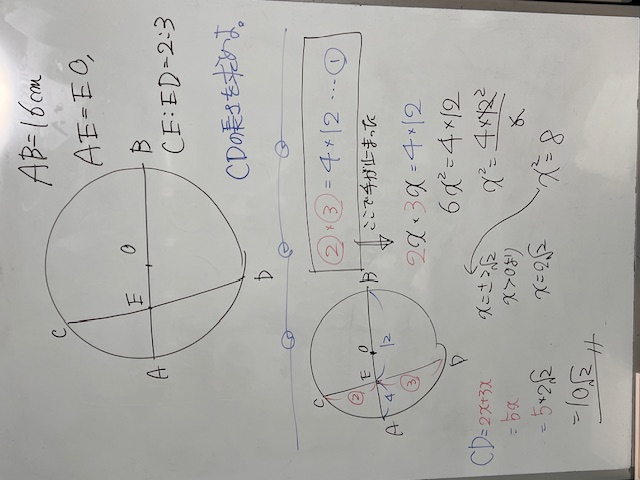 AB=16cm
AE=EO,
CE:ED=2:3
CDの長さを求めよ。
C
A
E
O
B
D
②×③=4×12…①
ここで手が止まった
2x×3x=4×12
6x²=4×12
x²=4×12²
6
x²=8
x=±2√2
x>0より
x=2√2
C
A
E
O
B
D
②
③
4
12
CD=2x+3x
=5x
=5×2√2
=10√2